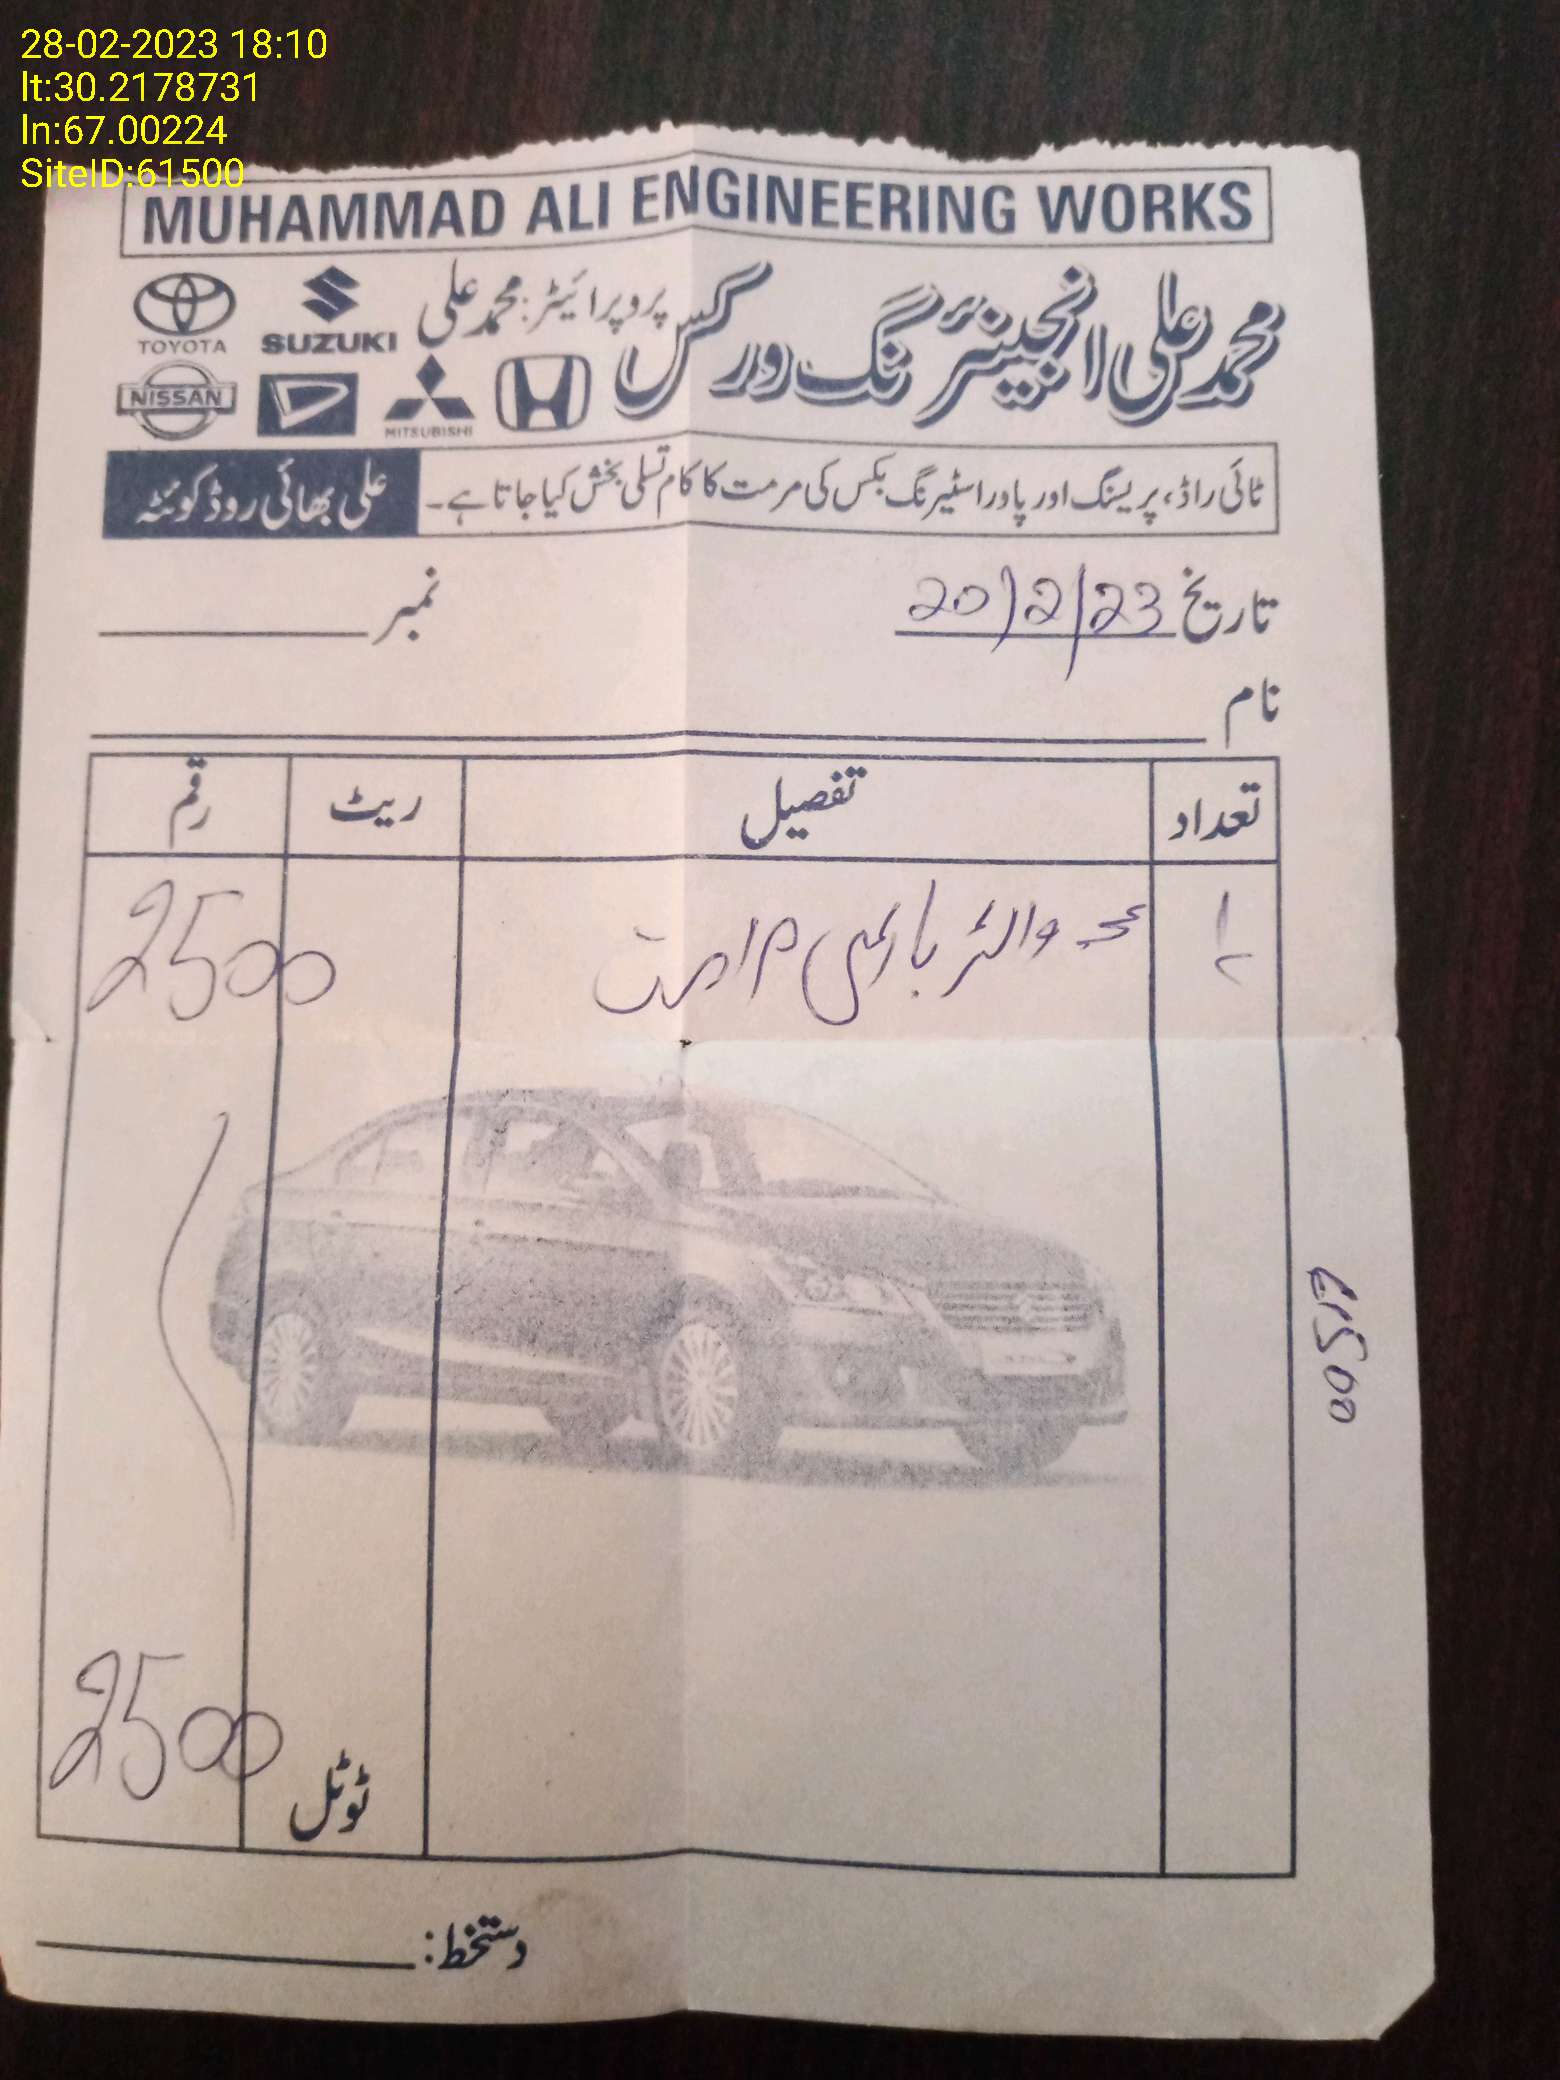 28-02-2023 18:10
lt:30.2178731
ln:67.00224
SiteID:61500
MUHAMMAD ALI ENGINEERING WORKS
محمد علی انجینئرنگ ورکس
پروپرائیٹر: محمد علی
TOYOTA SUZUKI
NISSAN MITSUBISHI
ٹائی راڈ، پریسنگ اور پاور اسٹیرنگ بکس کی مرمت کا کام تسلی بخش کیا جاتا ہے۔
علی بھائی روڈ کوئٹہ
تاریخ 20/2/23 نمبر
نام
تعداد تفصیل ریٹ رقم
2500
61500
ٹوٹل 2500
دستخط: